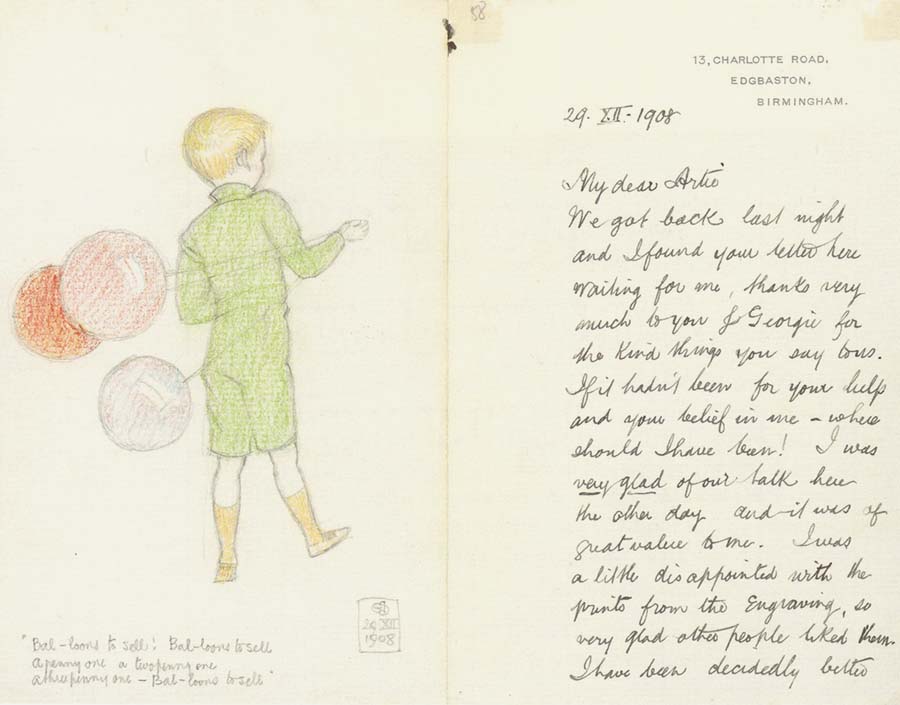 "Bal-loons to sell! Bal-loons to sell
a penny one a twopenny one
a threepenny one – Bal-loons to sell"
29 XII
1908
58
13, CHARLOTTE ROAD,
EDGBASTON,
BIRMINGHAM.
29. XII. – 1908
My dear Artie
We got back last night
and I found your letter here
waiting for me, thanks very
much to you & Georgie for
the kind things you say to us.
If it hadn't been for your help
and your belief in me – where
should I have been! I was
very glad of our talk here
the other day and it was of
great value to me. I was
a little disappointed with the
prints from the Engraving, so
very glad other people liked them.
I have been decidedly better